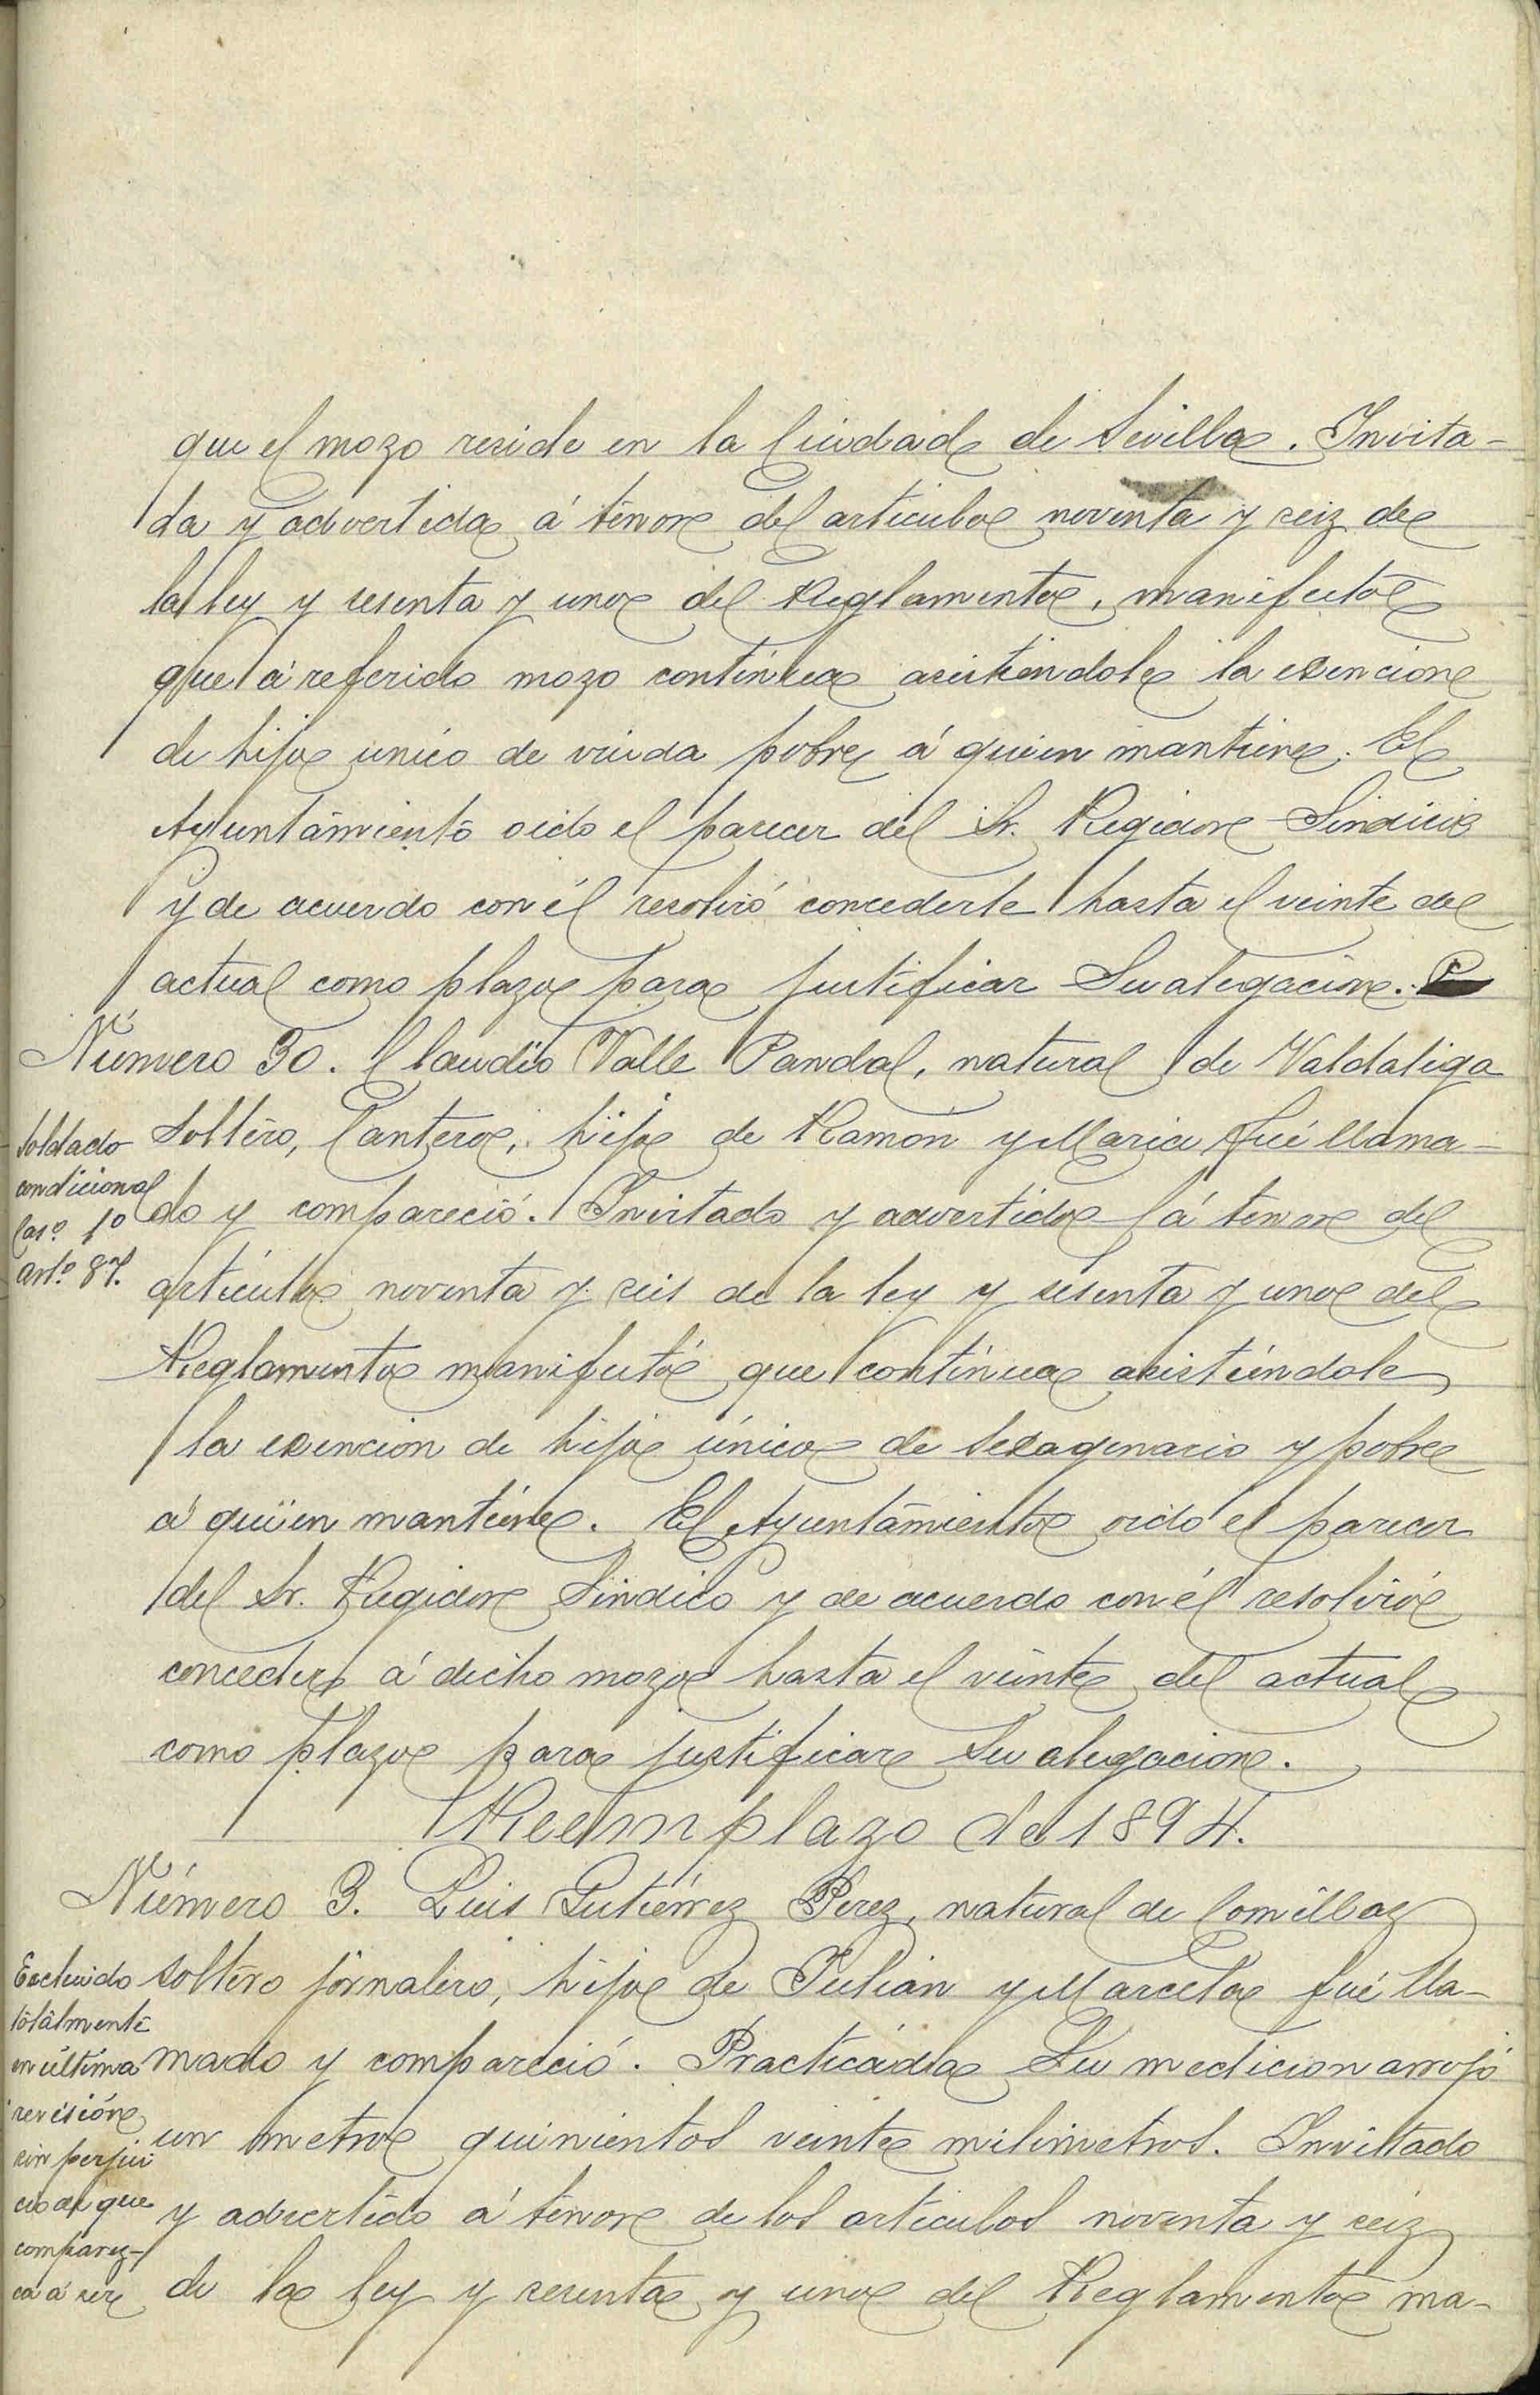 que el mozo reside en la Ciudad de Sevilla. Invita-
da y advertida á tenor del articulo noventa y seiz de
la ley y sesenta y uno del Reglamento, manifestó
que á referido mozo continua asistiendole la exencion
de hijo unico de viuda pobre á quien mantiene. El
Ayuntamiento oido el parecer del Sr. Regidor Sindico
y de acuerdo con él resolvió concederle hasta el veinte del
actual como plazo para justificar su alegacion.
Número 30. Claudio Valle Pandal, natural de Valdaliga
soltero, Cantero, hijo de Ramón y Maria fué llama-
do y compareció. Invitado y advertido á tenor del
artículo noventa y seis de la ley y sesenta y uno del
Reglamento manifestó que continua asistiéndole
la exencion de hijo único de sexagenario y pobre
á quien mantiene. El Ayuntamiento oido el parecer
del Sr. Regidor Sindico y de acuerdo con él resolvió
conceder á dicho mozo hasta el veinte del actual
como plazo para justificar su alegacion.
Reemplazo de 1894.
Número 3. Luis Gutiérrez Perez, natural de Comillas
soltero jornalero, hijo de Julián y Marcela fué lla-
mado y compareció. Practicada su medicion arrojó
un metro quinientos veinte milimetros. Invitado
y advertido á tenor de los articulos noventa y seiz
de la ley y sesenta y uno del Reglamento ma-
Soldado
condicional
Caso 1º
artº 87.
Excluido
totalmente
en última
revisión
sin perjui
cio de que
comparez-
ca á ser